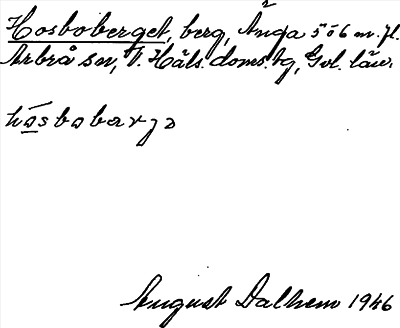 Hosboberget, berg, Änga 5 ö 6 m. fl.
Arbrå sn, V. Häls. doms:bg, Gvl. län.
hɔsbɔbarjə
August Dalhem 1946